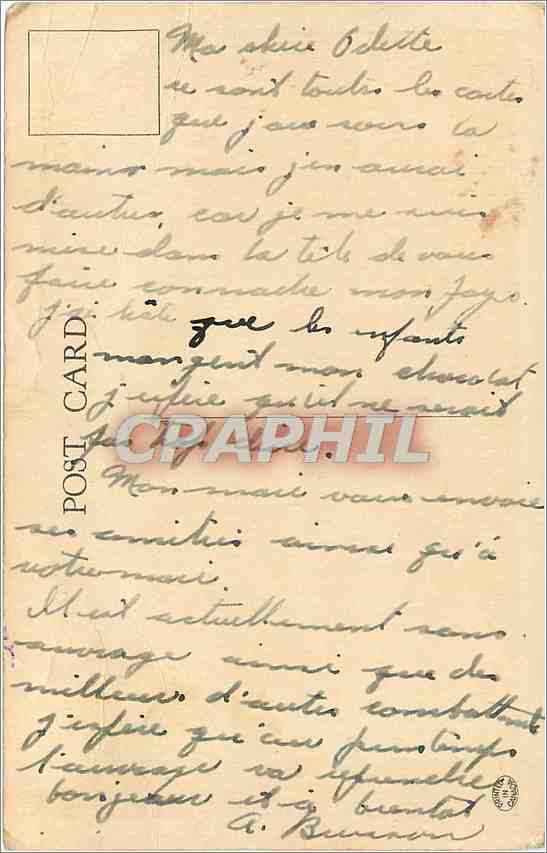 Ma chère Odette
ce sont toutes les cartes
que j'ai sous la
mains mais j'en aurai
d'autres, car je me suis
mise dans la tête de vous
faire connaitre mon pays.
j'ai hâte que les enfants
mangent mon chocolat
j'espère qu'il ne serait
pas trop
Mon mari vous envoie
ses amitiés ainsi qu'à
votre mari.
Il est actuellement sans
ouvrage ainsi que des
milliers d'autres combattants
j'espère qu'au printemps
l'ouvrage va reprendre
bonjour et à bientot
A.
POST CARD
CPAPHIL
PRINTED IN CANADA